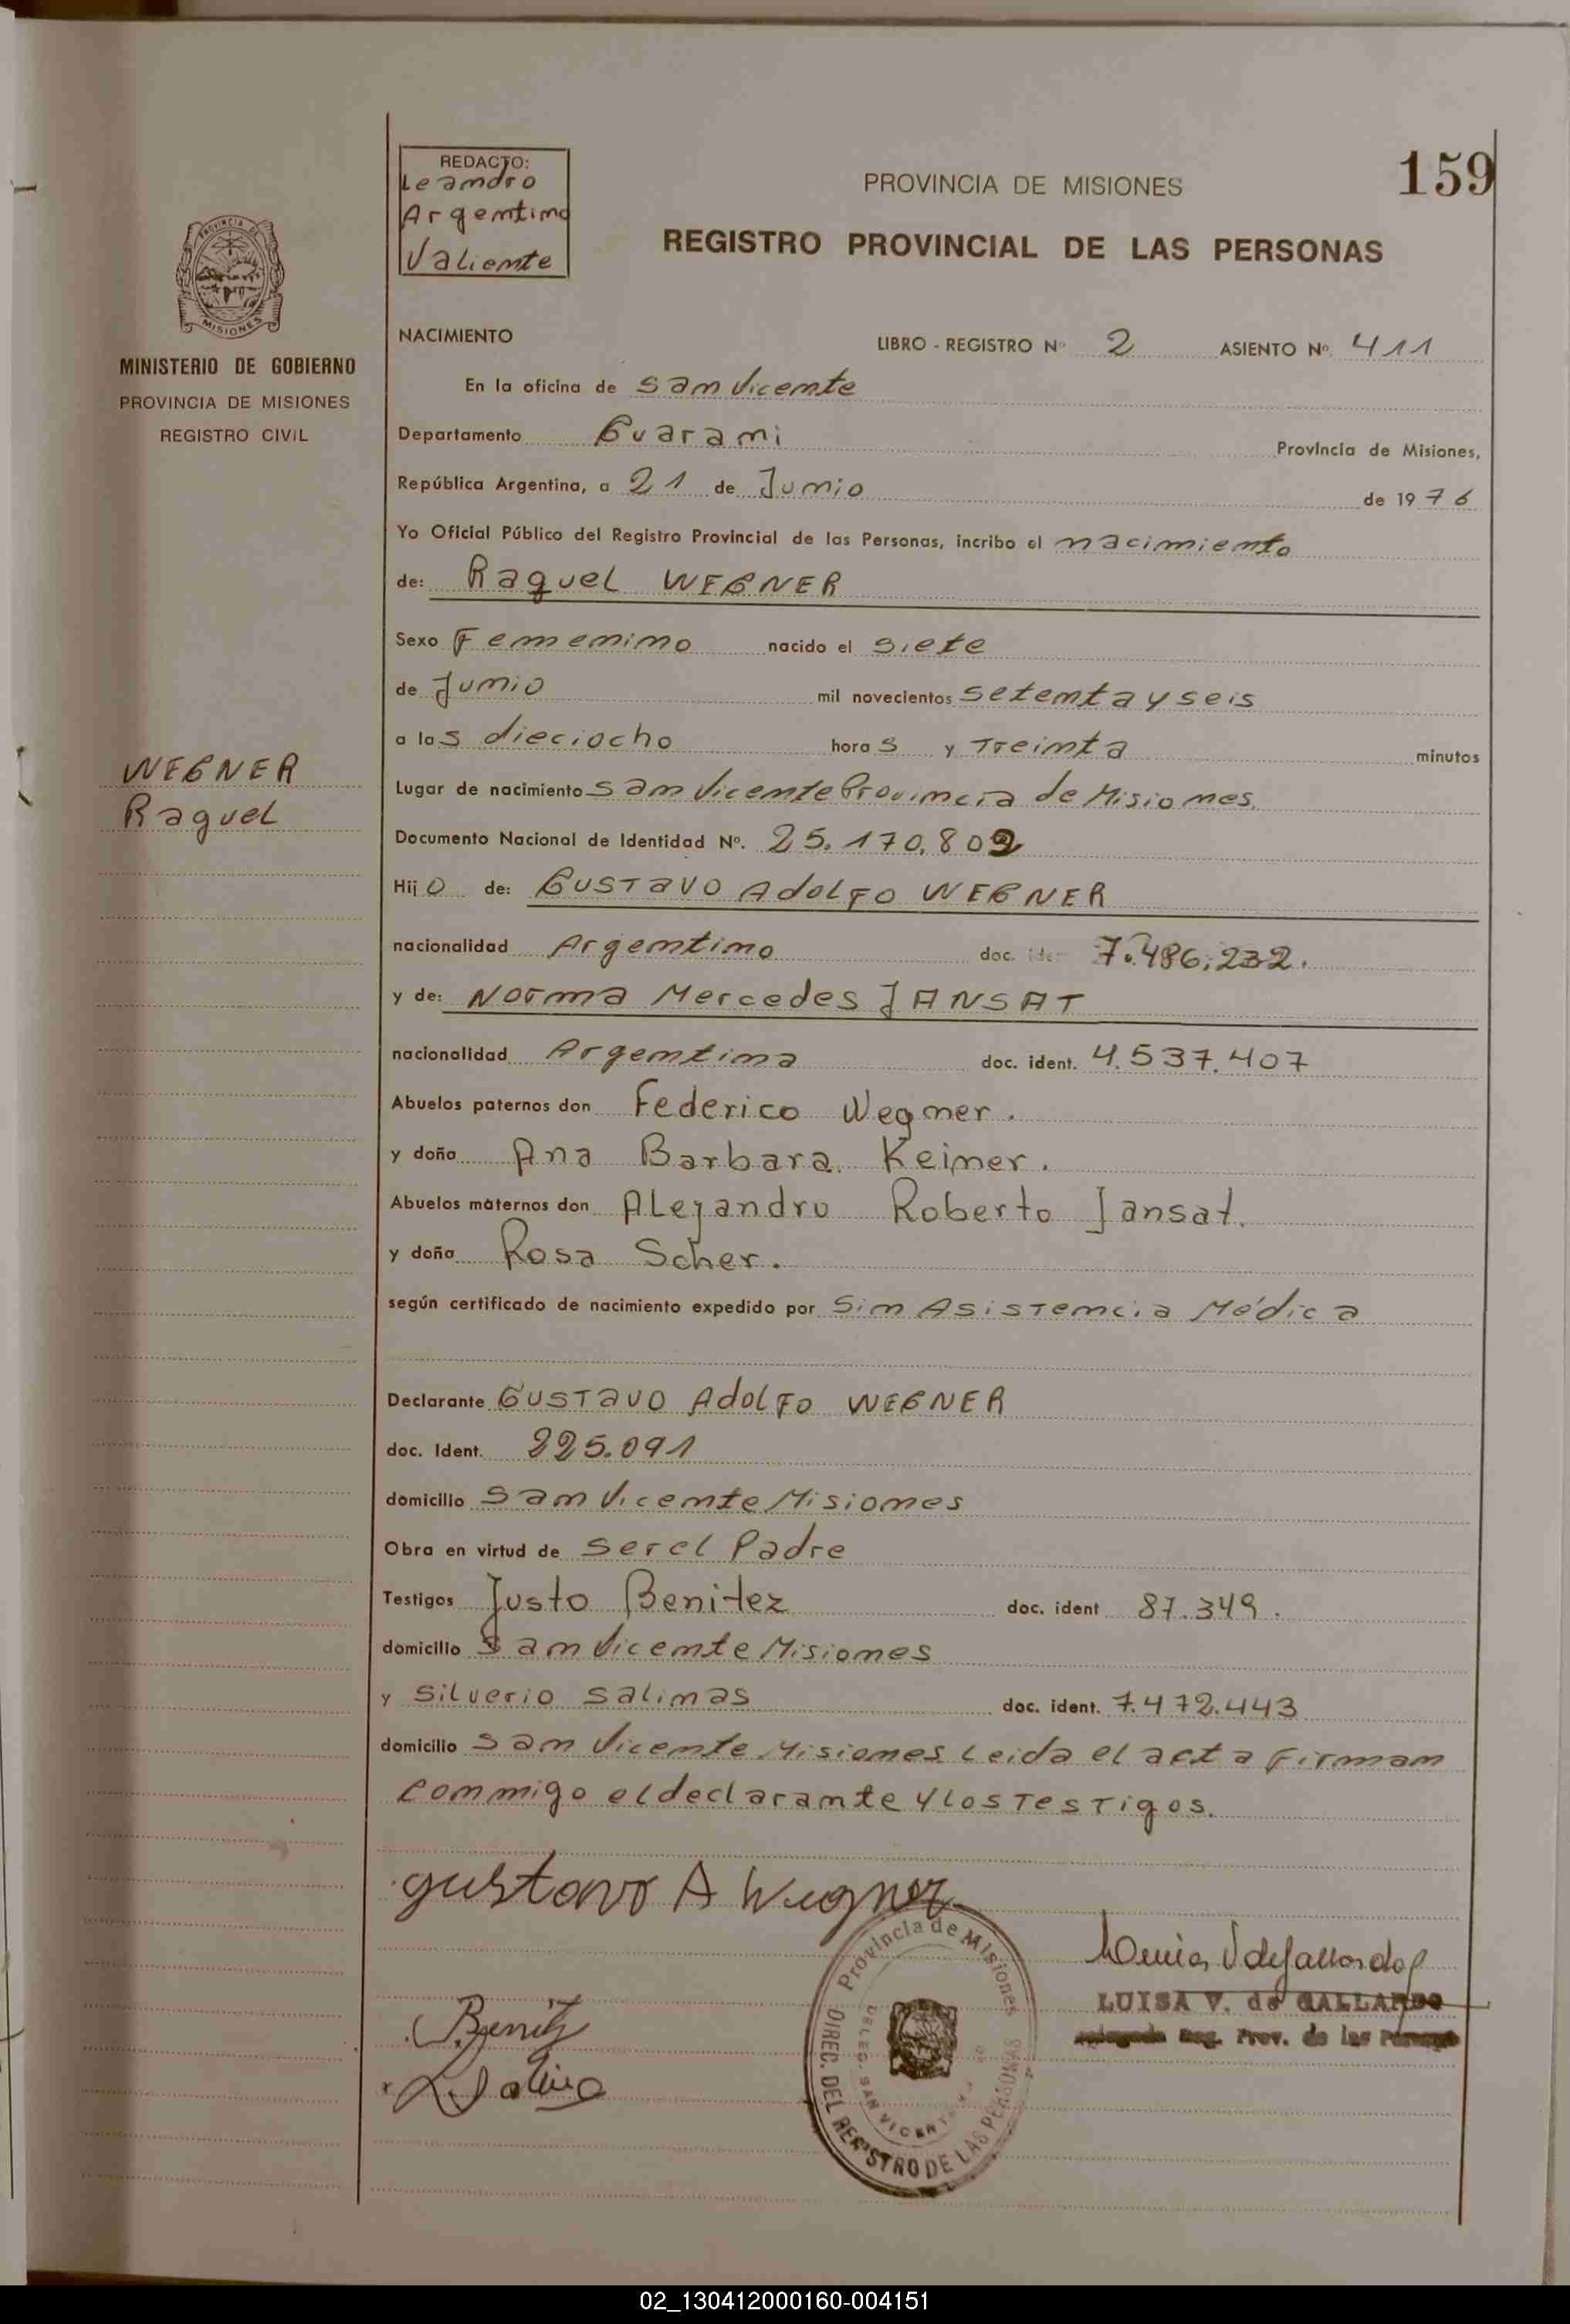 159
REDACTO:
Leandro
Argentino
Valiente
PROVINCIA DE MISIONES
REGISTRO PROVINCIAL DE LAS PERSONAS
PROVINCIA DE
MISIONES
MINISTERIO DE GOBIERNO
PROVINCIA DE MISIONES
REGISTRO CIVIL
NACIMIENTO LIBRO - REGISTRO Nº 2 ASIENTO Nº. 411
En la oficina de San Vicente
Departamento Guarani Provincia de Misiones,
República Argentina, a 21 de Junio de 1976
Yo Oficial Público del Registro Provincial de las Personas, incribo el nacimiento
de: Raquel WEGNER
Sexo Femenino nacido el siete
de Junio mil novecientos setenta y seis
a las dieciocho horas y Treinta minutos
WEGNER
Raquel
Lugar de nacimiento San Vicente Provincia de Misiones
Documento Nacional de Identidad Nº. 25.170.802
Hijo de: GUSTavo AdolFo WEGNER
nacionalidad Argentino doc. iden 7.486.232.
y de: Norma Mercedes JANSAT
nacionalidad Argentina doc. ident. 4.537.407
Abuelos paternos don Federico Wegner.
y doña Ana Barbara Keimer.
Abuelos maternos don Alejandro Roberto Jansat.
y doña Rosa Scher.
según certificado de nacimiento expedido por Sin Asistencia Médica
Declarante GUSTavo AdolFo WEGNER
doc. Ident. 225.091
domicilio San Vicente Misiones
Obra en virtud de ser el Padre
Testigos Justo Benitez doc. ident 87.349.
domicilio San Vicente Misiones
y Silverio Salinas doc. ident. 7.472.443
domicilio San Vicente Misiones Leida el acta Firman
conmigo el declarante y los Testigos.
gustavo A Wegner
Provincia de Misiones
DIREC. DEL REGISTRO DE LAS PERSONAS
DELEG. SAN VICENTE
LUISA V. de GALLARDO
Reg. Prov. de las Personas
Benitz
02_130412000160-004151